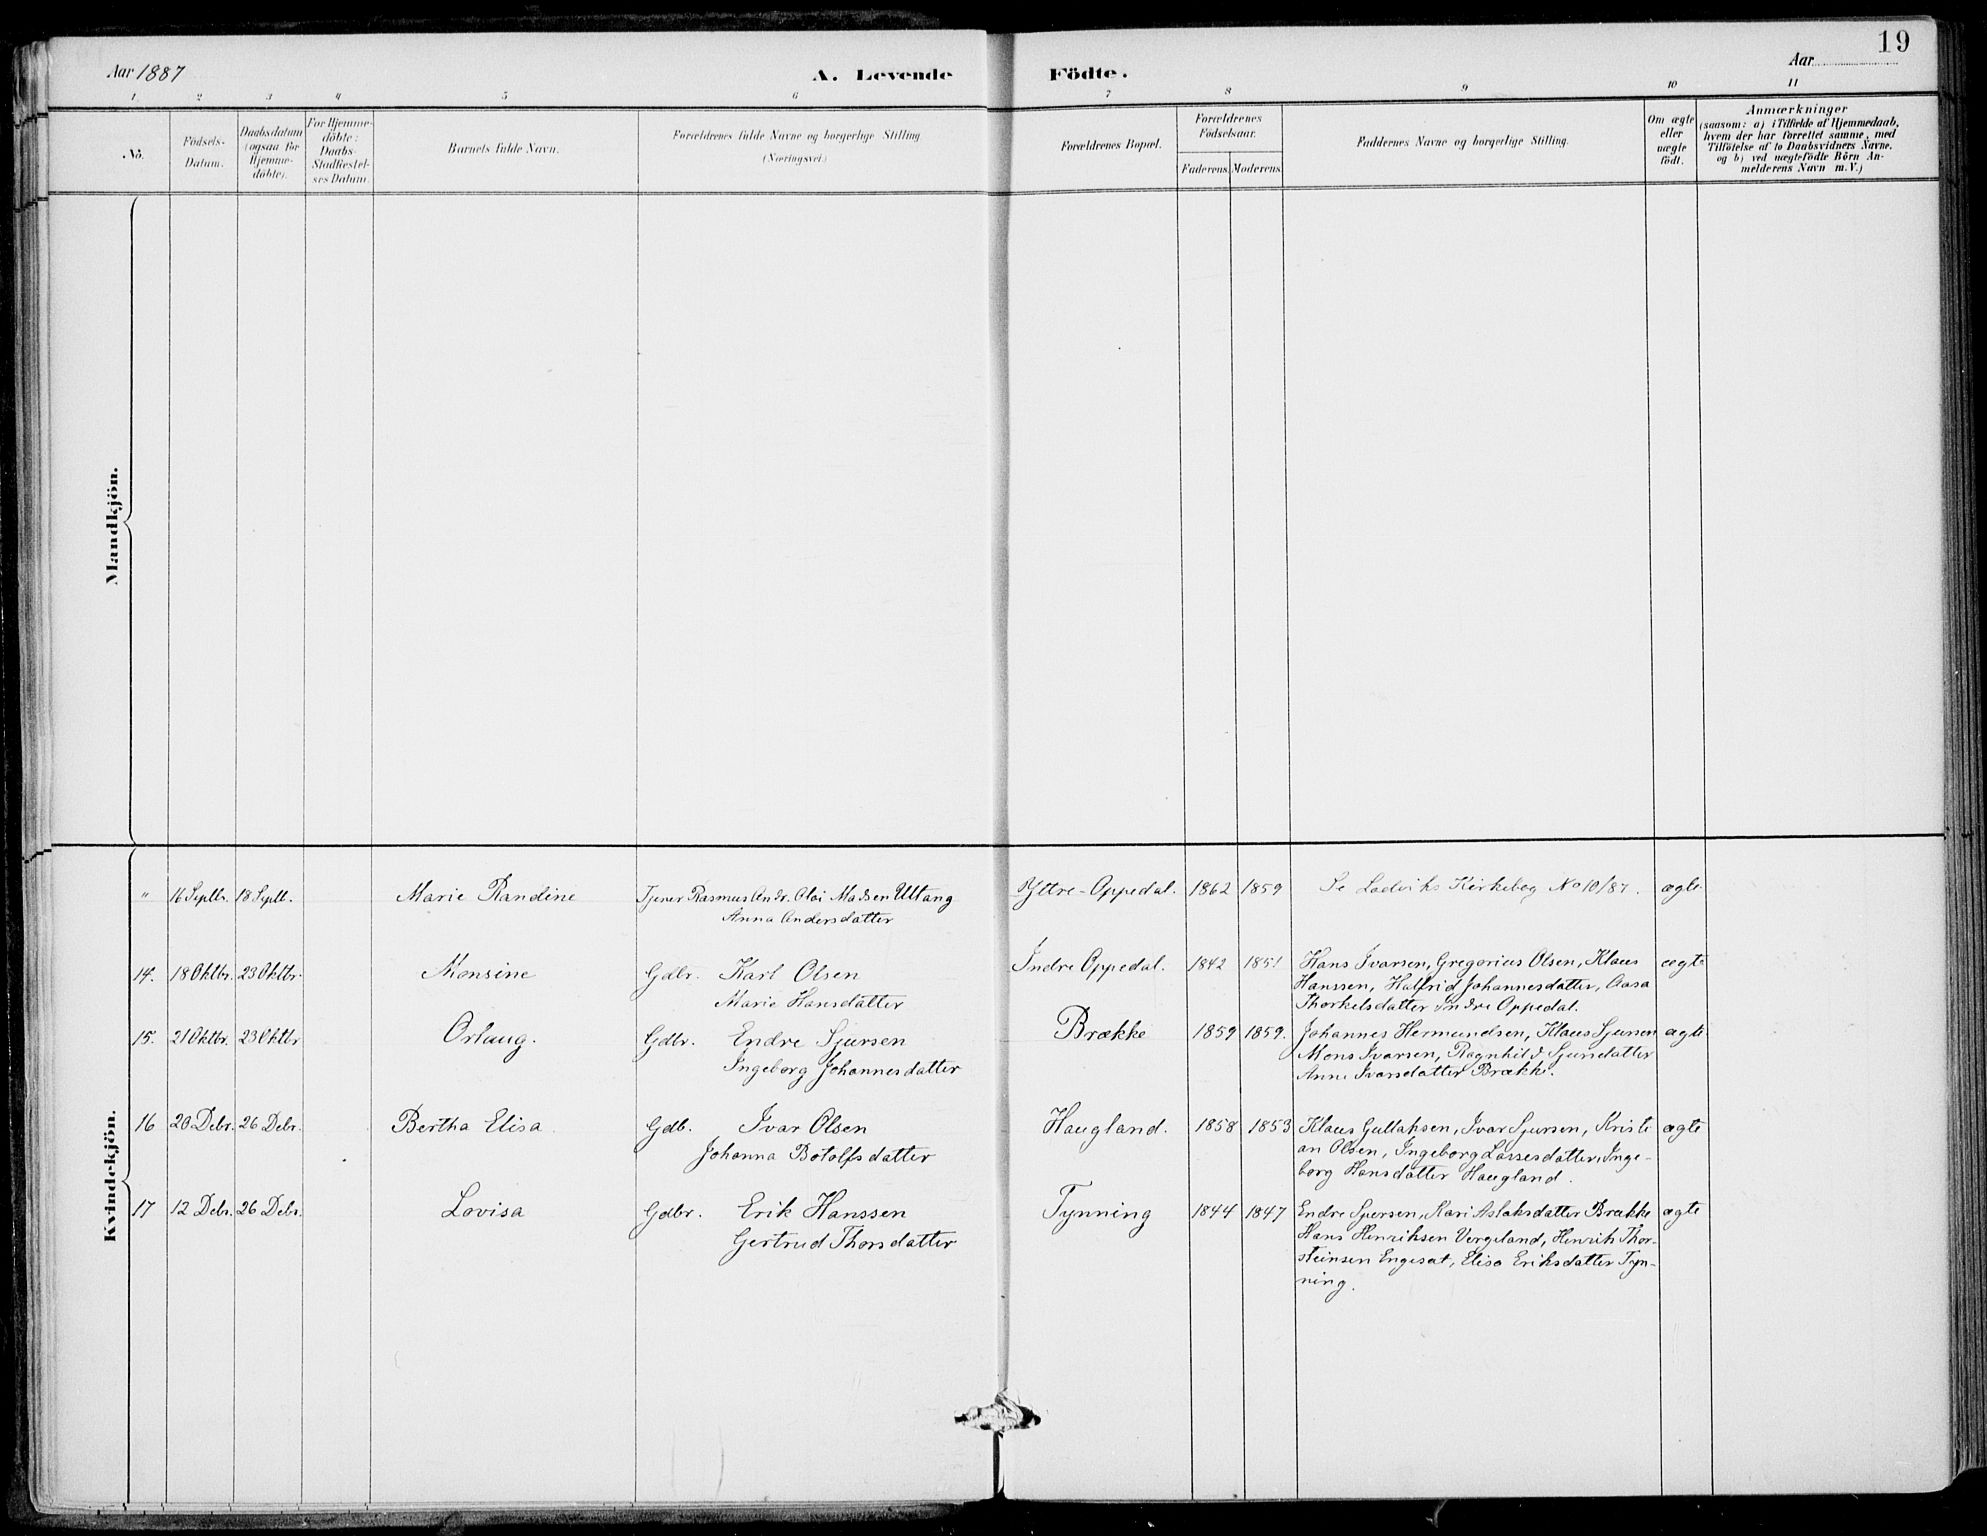 19
Aar 1887
A. Levende Födte.
Aar
1 2 3 4 5 6 7 8 9 10 11
No.
Födsels-Datum.
Daabsdatum (ogsaa for Hjemme-döbte).
For Hjemme-döbte: Daabs-Stadfæstel-ses Datum.
Barnets fulde Navn.
Forældrenes fulde Navne og borgerlige Stilling
(Næringsvei.)
Forældrenes Bopæl.
Forældrenes Födselsaar.
Faderens. Moderens.
Faddernes Navne og borgerlige Stilling.
Om ægte eller uægte födt.
Anmærkninger
(saasom: a) i Tilfælde af Hjemmedaab,
hvem der har forrettet samme, med
Tilföielse af to Daabsvidners Navne.
og b) ved uægtefödte Börn An-
melderens Navn m.V.)
Mandkjön.
Kvindekjön.
" 16 Septbr. 18 Septb. Marie Randine Tjener Rasmus Andr. Oloi Madsen Yttre-Oppedal. 1862 1859 Se Ladviks Kirkebog No 10/87. ægte
Anna Andersdatter
14. 18 Oktbr. 23 Oktbr. Monsine Gdbr. Karl Olsen Indre Oppedal. 1842 1851 Hans Ivarsen, Gregorius Olsen, Klaus ægte
Marie Hansdatter Hanssen, Halfrid Johannesdatter, Aasa
Thorkelsdatter Indre Oppedal.
15. 21 Oktbr. 23 Oktbr Orlaug. Gdbr. Endre Sjursen Brække 1859 1859. Johannes Hermundsen, Klaus Sjursen ægte
Ingeborg Johannesdatter Mons Ivarsen, Ragnhild Sjursdatter
Anne Ivarsdatter Brække.
16 20 Debr. 26 Debr. Bertha Elisa Gdb. Ivar Olsen Haugland. 1858 1853 Klaus Gullaksen, Ivar Sjursen, Kristi ægte
Johanna Botolfsdatter an Olsen, Ingeborg Lassesdatter, Inge-
borg Hansdatter Haugland.
17 12 Debr. 26 Debr. Lovisa Gdbr. Erik Hanssen Tynning 1844 1847 Endre Sjursen, Kari Aslaksdatter Brække ægte
Gertrud Thorsdatter Hans Henriksen Vergeland, Henrik Thor-
steinsen Engesæt, Elisa Eriksdatter Tyn-
ning.